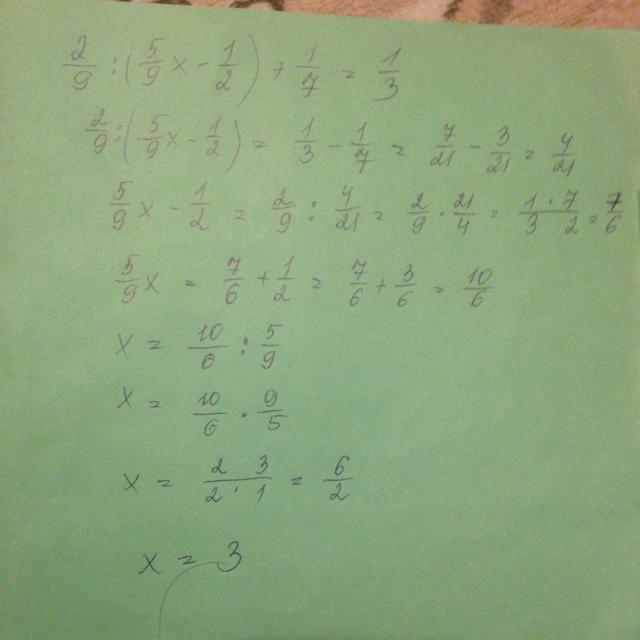 2/9 : (5/9 x - 1/2) + 1/7 = 1/3
2/9 : (5/9 x - 1/2) = 1/3 - 1/7 = 7/21 - 3/21 = 4/21
5/9 x - 1/2 = 2/9 : 4/21 = 2/9 · 21/4 = 1·7/3 2 = 7/6
5/9 x = 7/6 + 1/2 = 7/6 + 3/6 = 10/6
x = 10/6 : 5/9
x = 10/6 · 9/5
x = 2 3/2·1 = 6/2
x = 3